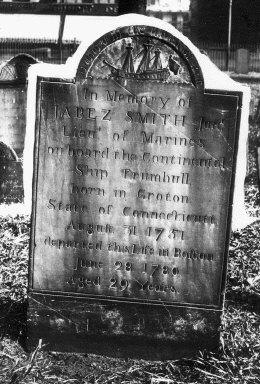 In Memory of
JABEZ SMITH Jun.r
Lieu.t of Marines
on board the Continental
Ship Trumbull
born in Groton
State of Connecticutt
August 31 1751
departed this Life in Boston
June 28 1780
Aged 29 Years